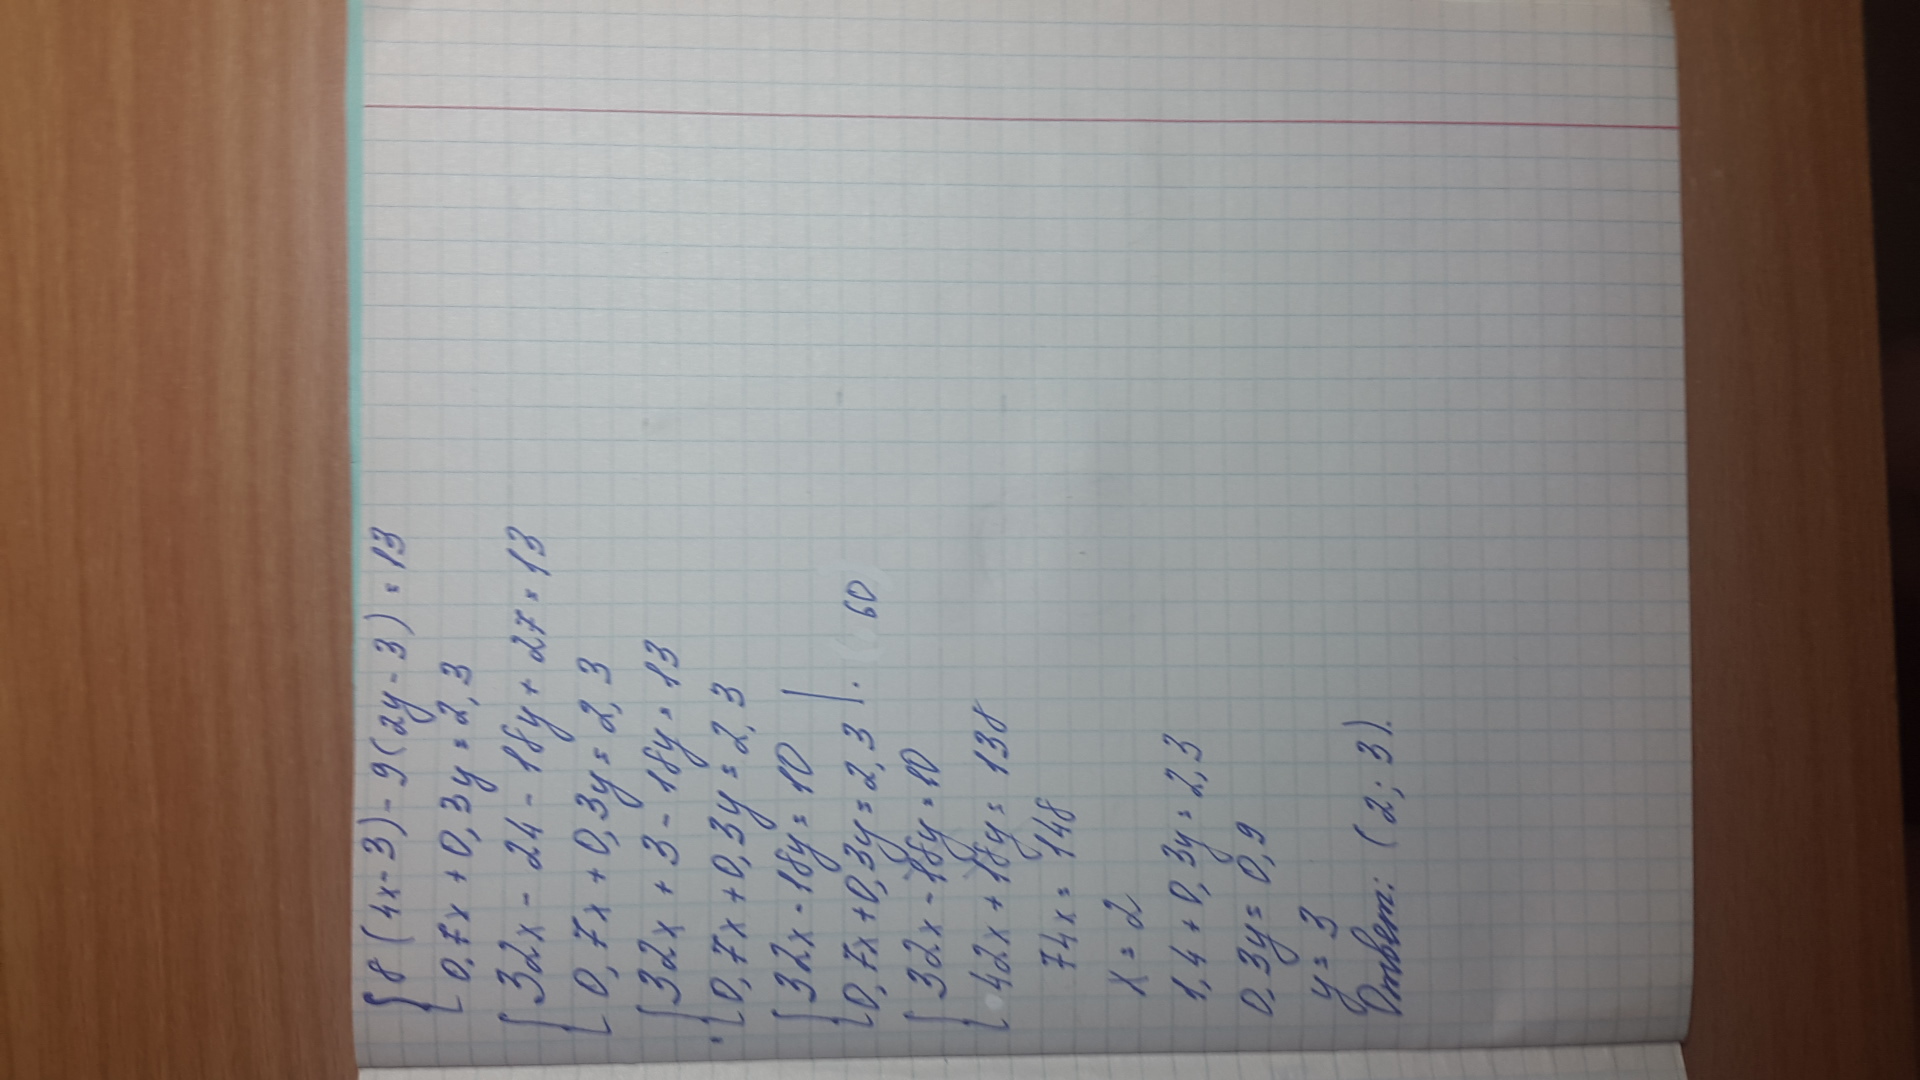 { 8(4x-3)-9(2y-3)=13
0,7x+0,3y=2,3
{ 32x-24-18y+27=13
0,7x+0,3y=2,3
{ 32x+3-18y=13
0,7x+0,3y=2,3
{ 32x-18y=10
0,7x+0,3y=2,3 |·60
{ 32x-18y=10
42x+18y=138
74x=148
x=2
1,4+0,3y=2,3
0,3y=0,9
y=3
Ответ: (2;3).